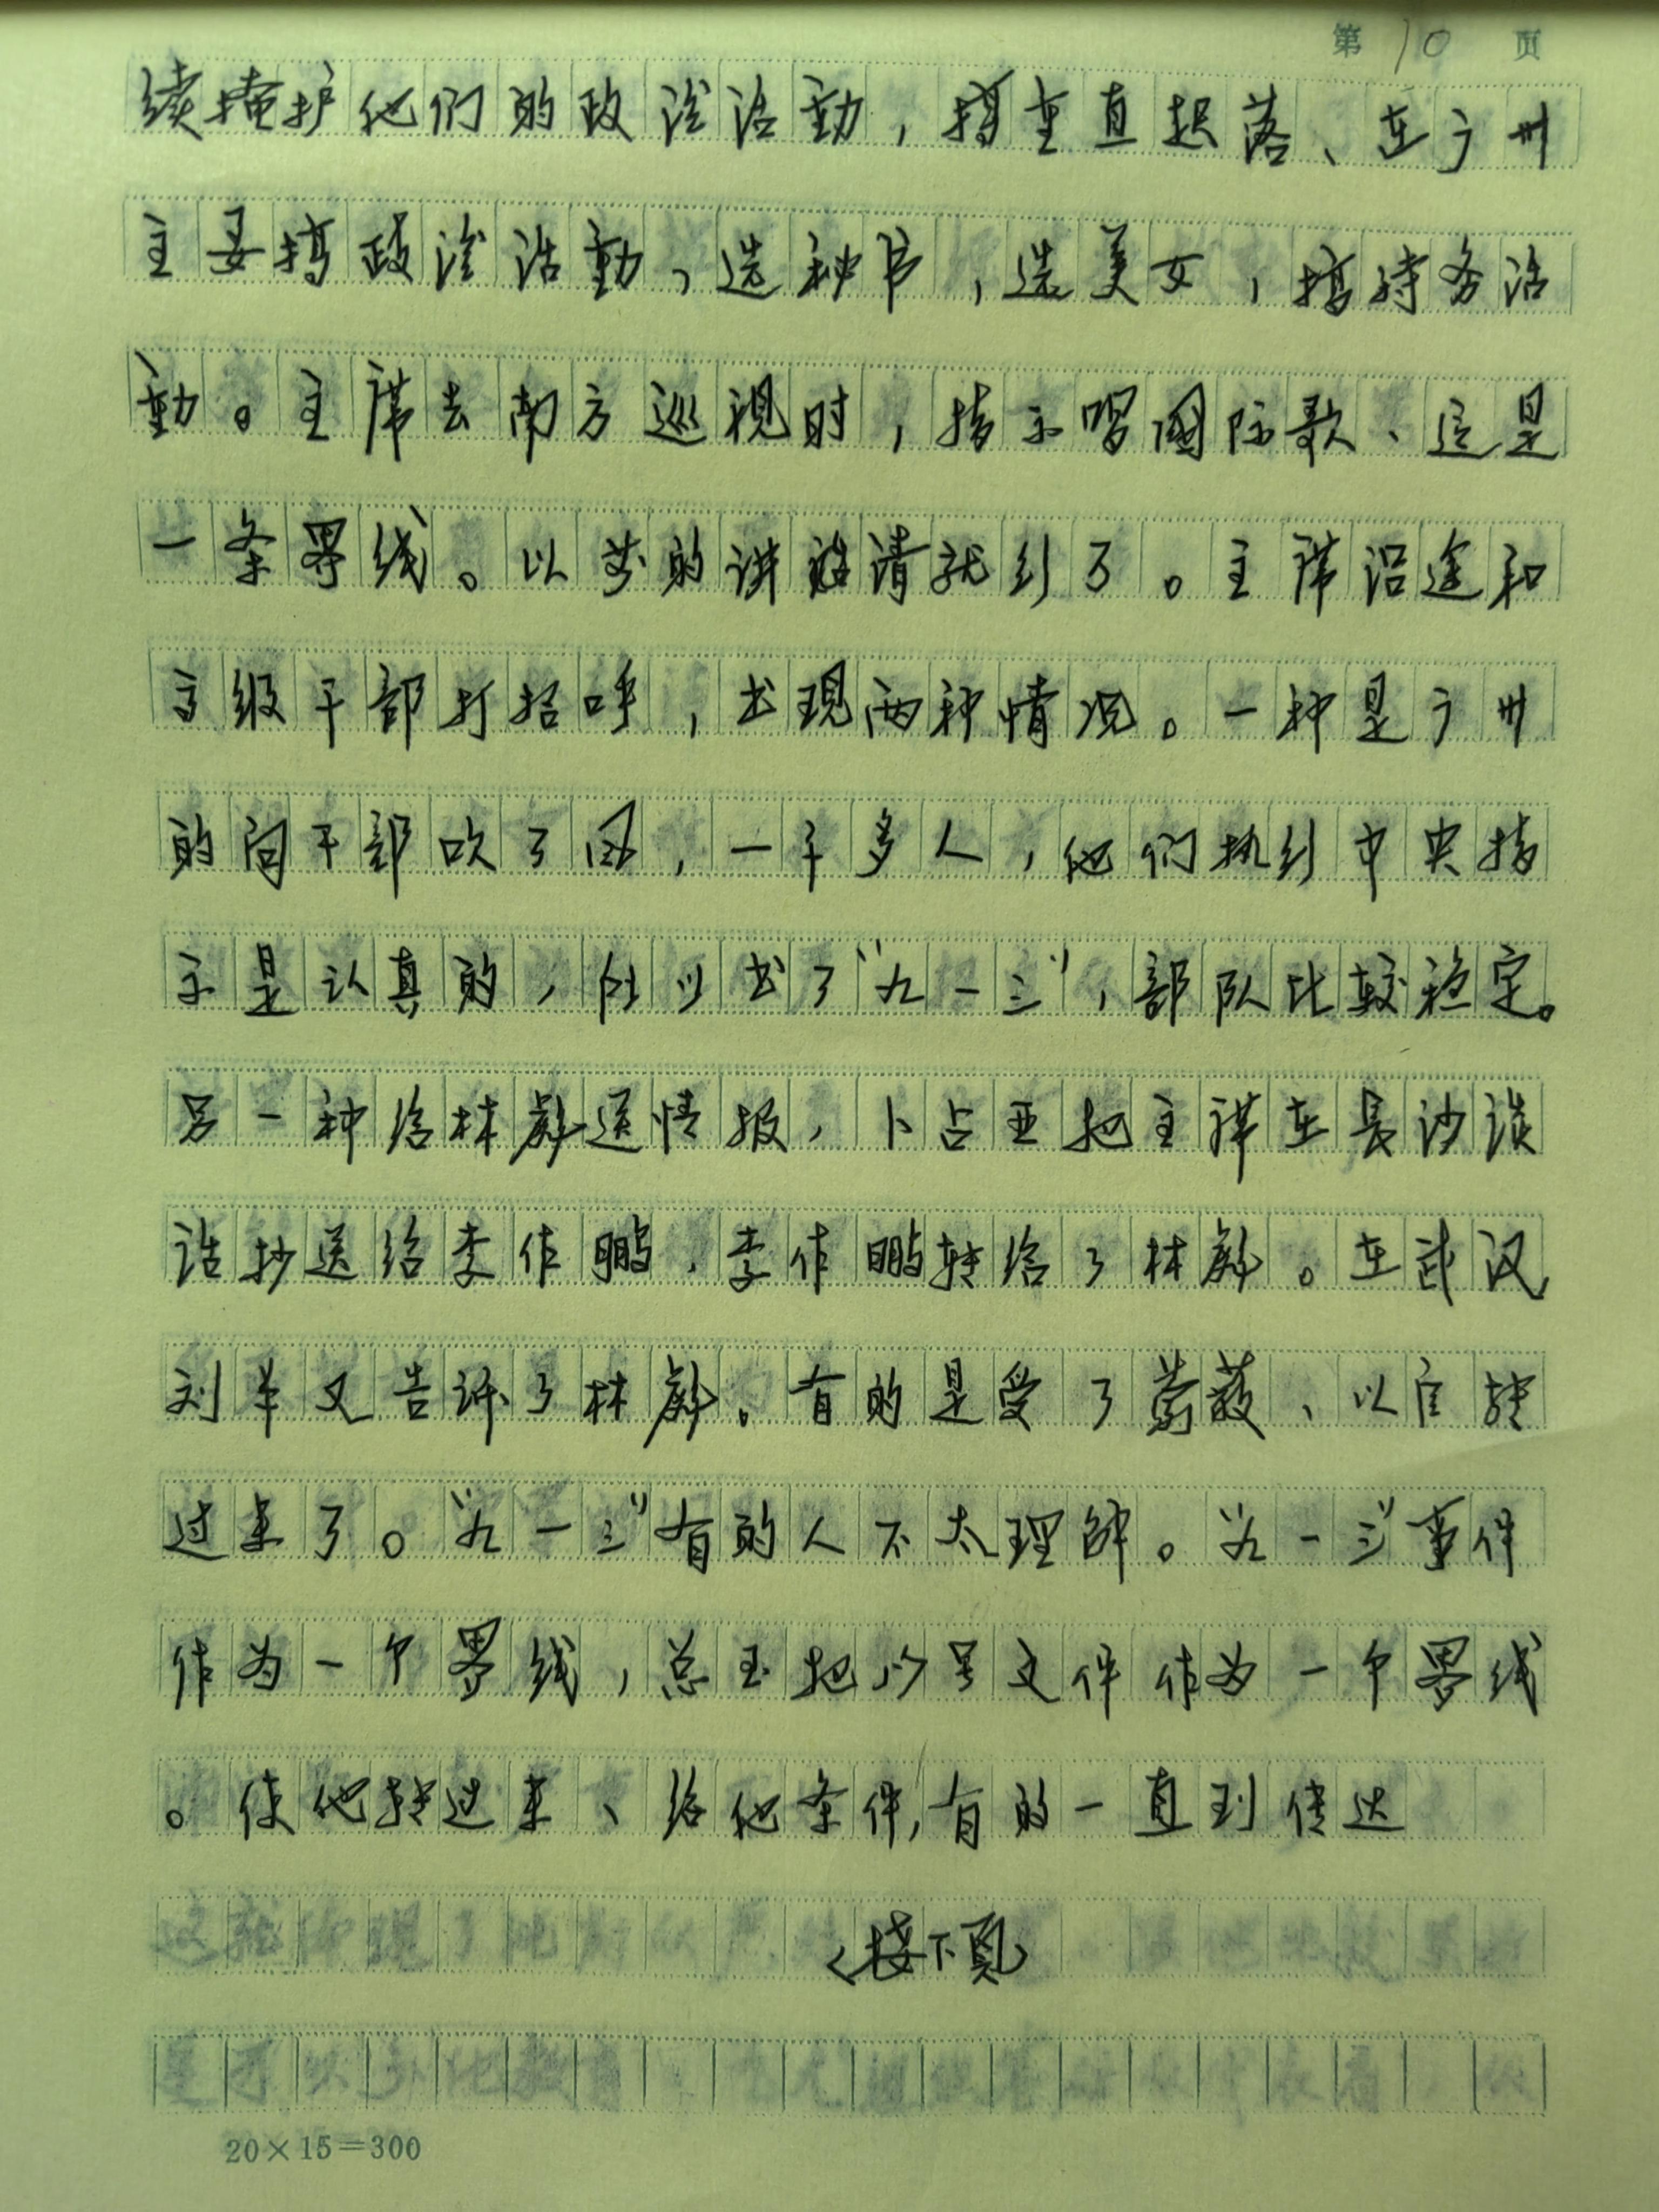 第10页
续掩护他们的政治活動，搞垂直起落、在广州
主要搞政治活動，选秘书，选美女，搞特务活
動。主席去南方巡视时，指示唱國际歌、这是
一条界线。以前的讲清就行了。主席沿途和
高级干部打招呼，出现两种情况。一种是广州
的向干部吹了风，一千多人，他们执行中央指
示是认真的，所以出了“九一三”，部队比较稳定。
另一种给林彪送情报，卜占亚把主席在长沙谈
话抄送给李作鹏，李作鹏转给了林彪。在武汉
刘丰又告诉了林彪。有的是受了蒙蔽、以后转
过来了。“九一三”有的人不太理解。“九一三”事件
作为一个界线，总去把号文件作为一个界线
。使他转过来、给他条件，有的一直到传达
<接下頁>
20×15=300